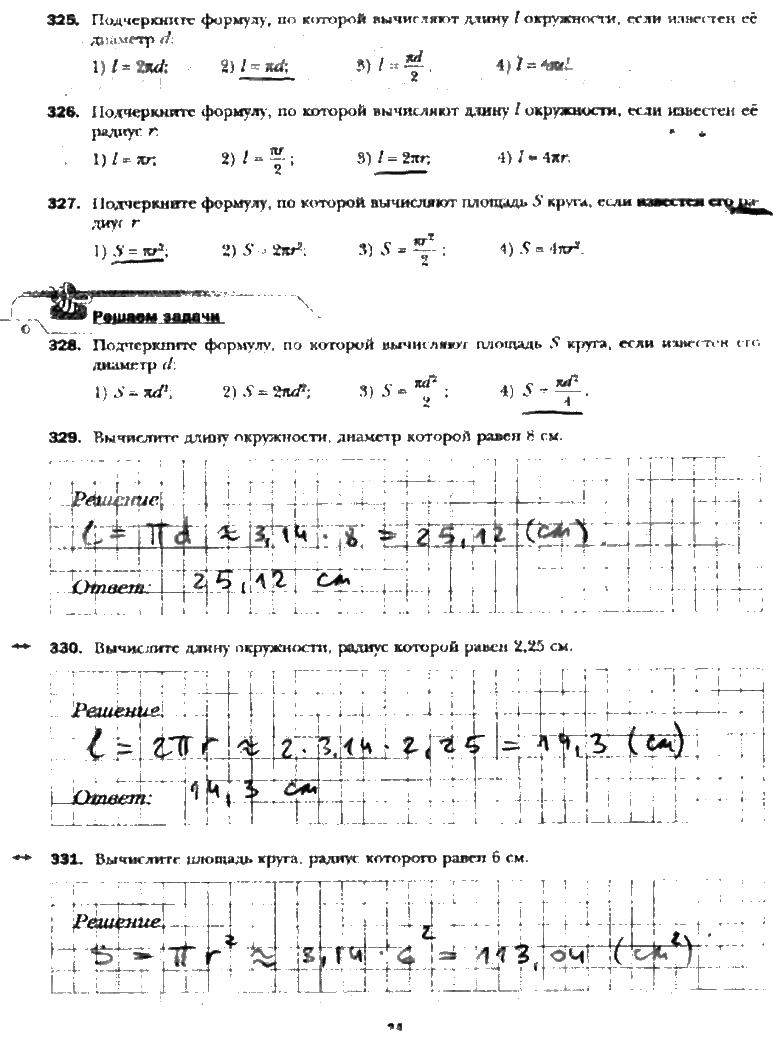 325. Подчеркните формулу, по которой вычисляют длину l окружности, если известен её
диаметр d:
1) l = 2πd; 2) l = πd; 3) l = πd/2. 4) l = 4πd.
326. Подчеркните формулу, по которой вычисляют длину l окружности, если известен её
радиус r:
1) l = πr; 2) l = πr/2; 3) l = 2πr; 4) l = 4πr.
327. Подчеркните формулу, по которой вычисляют площадь S круга, если известен его ра-
диус r
1) S = πr²; 2) S = 2πr²; 3) S = πr²/2; 4) S = 4πr².
Решаем задачи
328. Подчеркните формулу, по которой вычисляют площадь S круга, если известен его
диаметр d:
1) S = πd²; 2) S = 2πd²; 3) S = πd²/2; 4) S = πd²/4.
329. Вычислите длину окружности, диаметр которой равен 8 см.
Решение.
l = πd ≈ 3,14 · 8 = 25,12 (см)
Ответ: 25,12 см
330. Вычислите длину окружности, радиус которой равен 2,25 см.
Решение.
l = 2πr ≈ 2·3,14·2,25 = 14,3 (см)
Ответ: 14,3 см
331. Вычислите площадь круга, радиус которого равен 6 см.
Решение.
S = πr² ≈ 3,14 · 6² = 113,04 (см²)